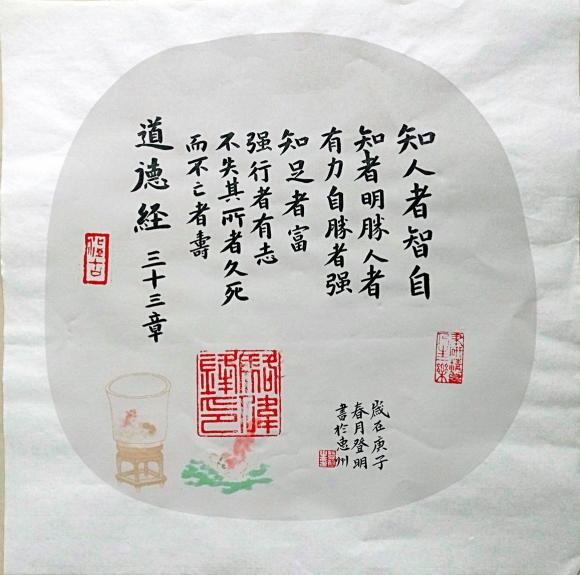 知人者智自
知者明勝人者
有力自勝者强
知足者富
强行者有志
不失其所者久死
而不亡者壽
道德经
三十三章
歲在庚子
春月登明
書於惠州